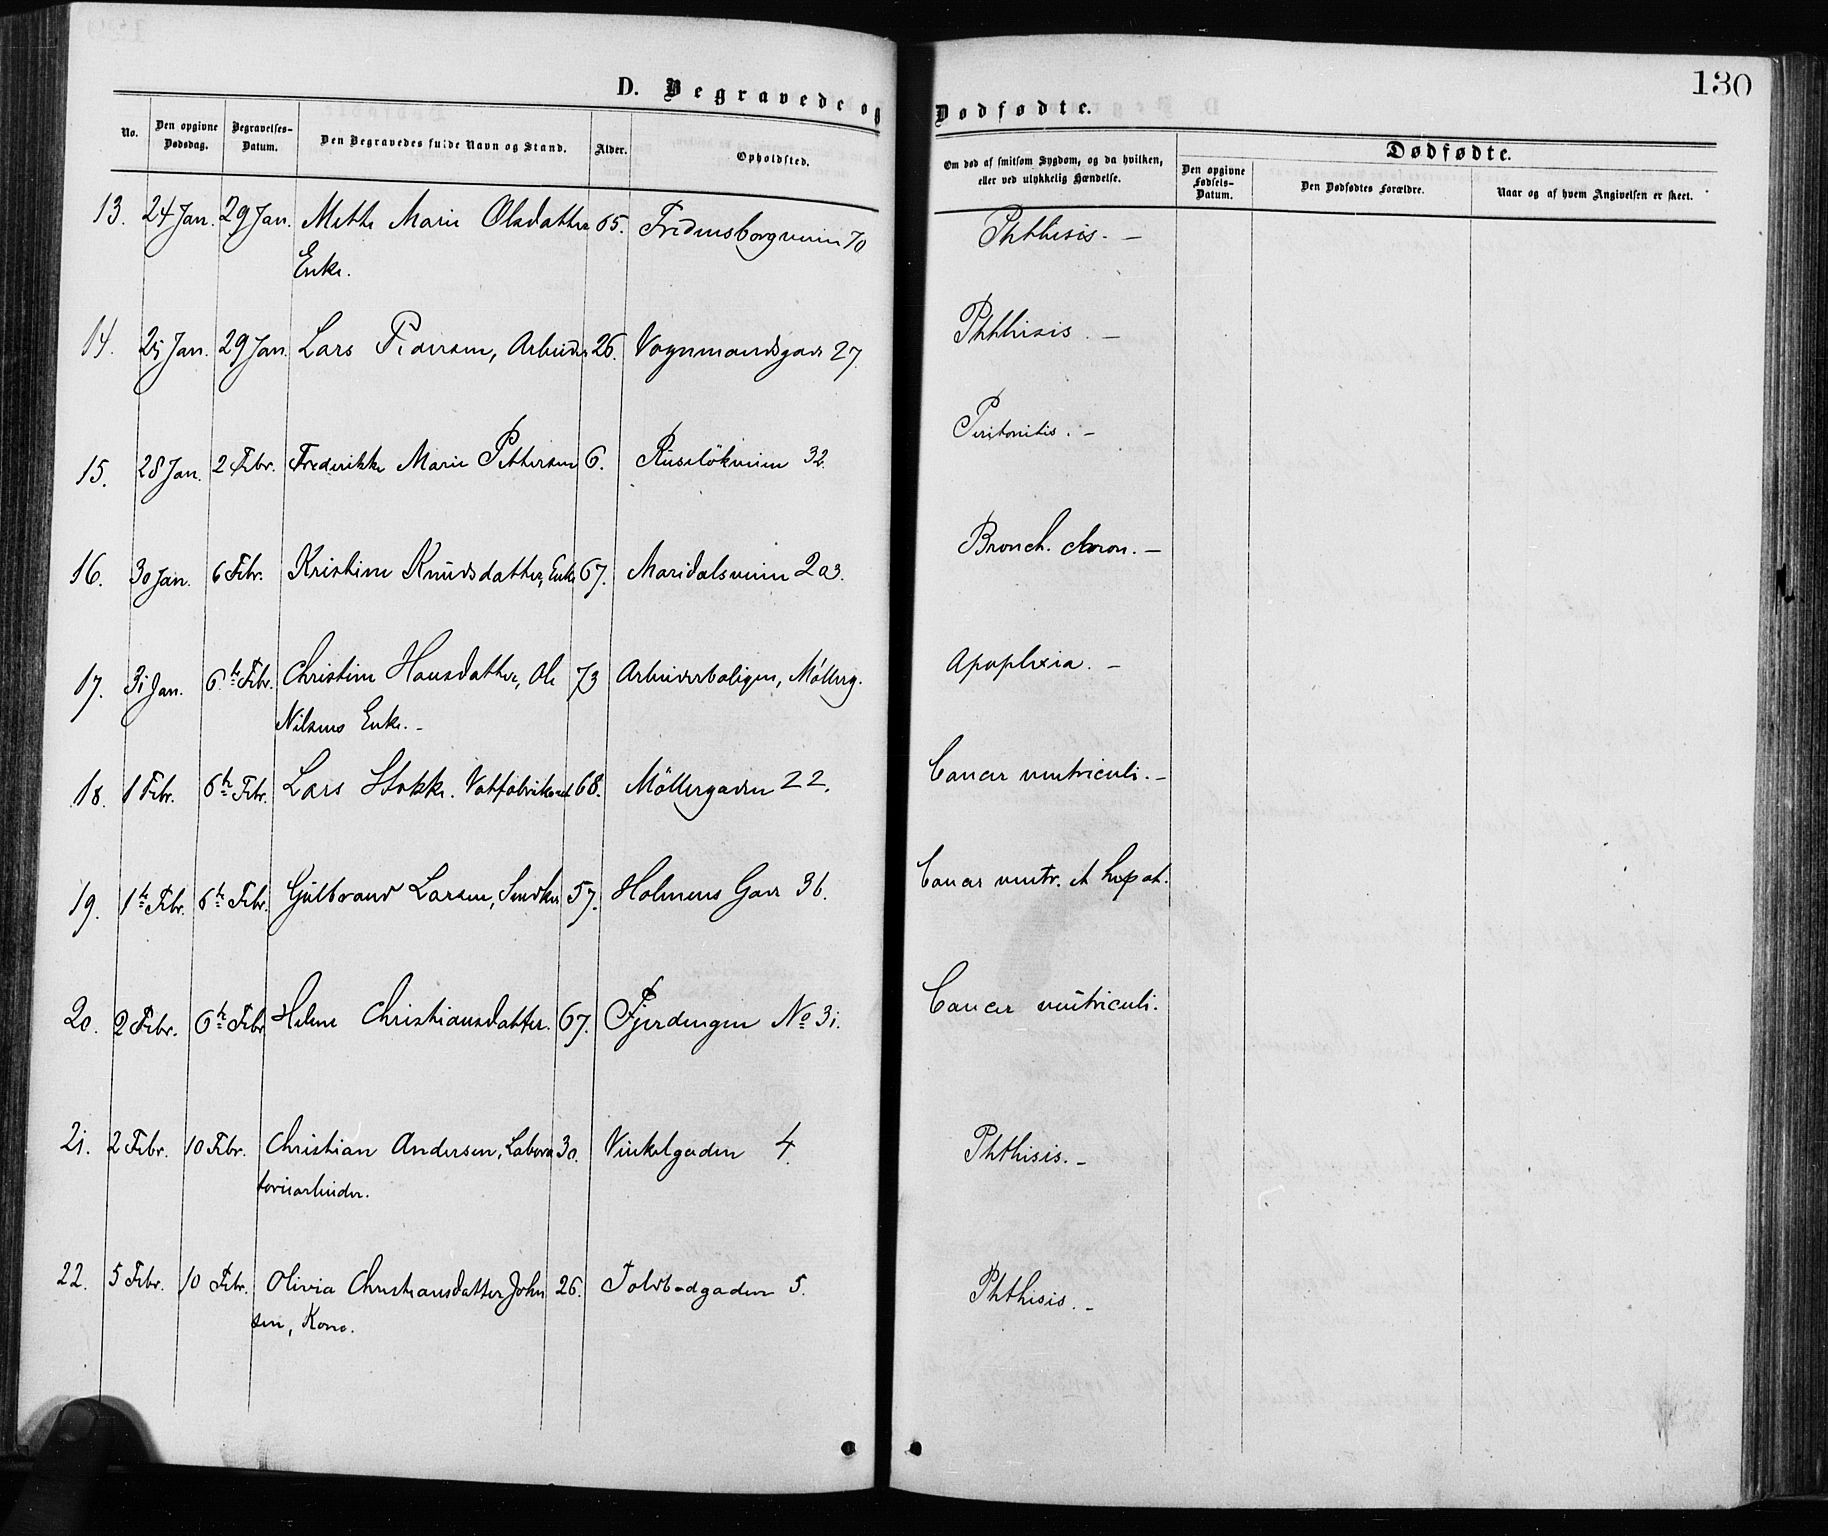 130
D. Begravede og Dødfødte.
No. | Den opgivne Dødsdag. | Begravelses-Datum. | Den Begravedes fulde Navn og Stand. | Alder. | Opholdsted. | Om død af smitsom Sygdom, og da hvilken, eller ved ulykkelig Hændelse. | Dødfødte. Den opgivne Fødsels-Datum. | Den Dødfødtes Forældre. | Naar og af hvem Angivelsen er skeet.
13. 24 Jan. 29 Jan. Mette Marie Olsdatter 65. Fredensborgveien 70 Phthisis. —
Enke.
14. 25 Jan. 29 Jan. Lars Pedersen, Arbeider 26. Vognmandsgad 27. Phthisis. —
15. 28 Jan. 2 Febr. Frederikke Marie Pettersen 6. Ruselökveien 32. Peritonitis. —
16. 30 Jan. 6 Febr. Kristine Knudsdatter, Enke 67. Maridalsveien 203. Bronch. chron. —
17. 31 Jan. 6te Febr. Christine Hansdatter, Ole 73 Arbeiderboligen, Möllerg. Apoplexia. —
Nilsens Enke. —
18. 1 Febr. 6te Febr. Lars Stokke. Vatfabrikant 68. Möllergaden 22. Cancer ventriculi. —
19. 1te Febr. 6te Febr. Gulbrand Larsen, Snedker 57. Holmens Gade 36. Cancer ventr. et hepat.
20. 2 Febr. 6te Febr Helene Christiansdatter. 67. Fjerdingen No 31. Cancer ventriculi.
21. 2 Febr. 10 Febr. Christian Andersen, Labora 30. Vinkelgaden 4. Phthisis. —
toriearbeider.
22. 5 Febr. 10 Febr. Olivia Christiansdatter John 26. Toldbodgaden 5. Phthisis. —
sen, Kone.